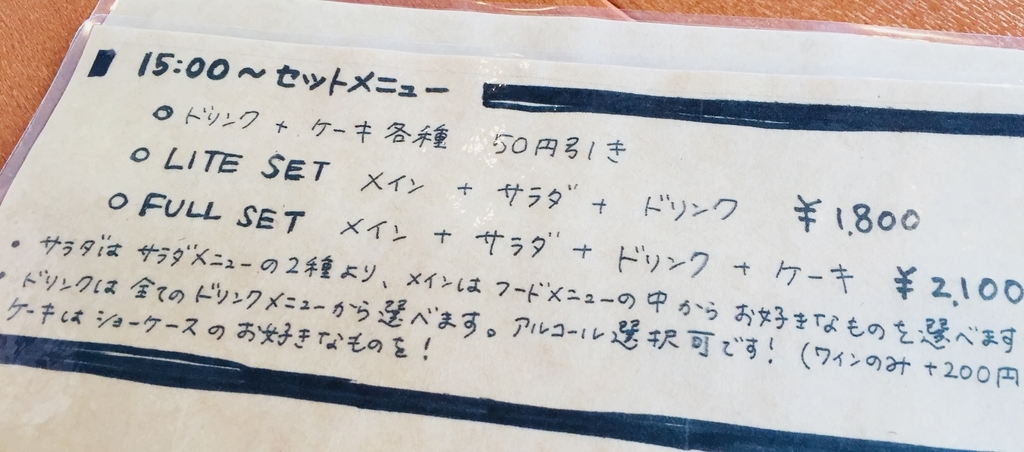 15:00～セットメニュー
○ドリンク + ケーキ各種 50円引き
○ LITE SET メイン + サラダ + ドリンク ¥1.800
○ FULL SET メイン + サラダ + ドリンク + ケーキ ¥2,100
・サラダはサラダメニューの2種より、メインはフードメニューの中からお好きなものを選べます
・ドリンクは全てのドリンクメニューから選べます。アルコール選択可です！(ワインのみ+200円
ケーキはショーケースのお好きなものを！